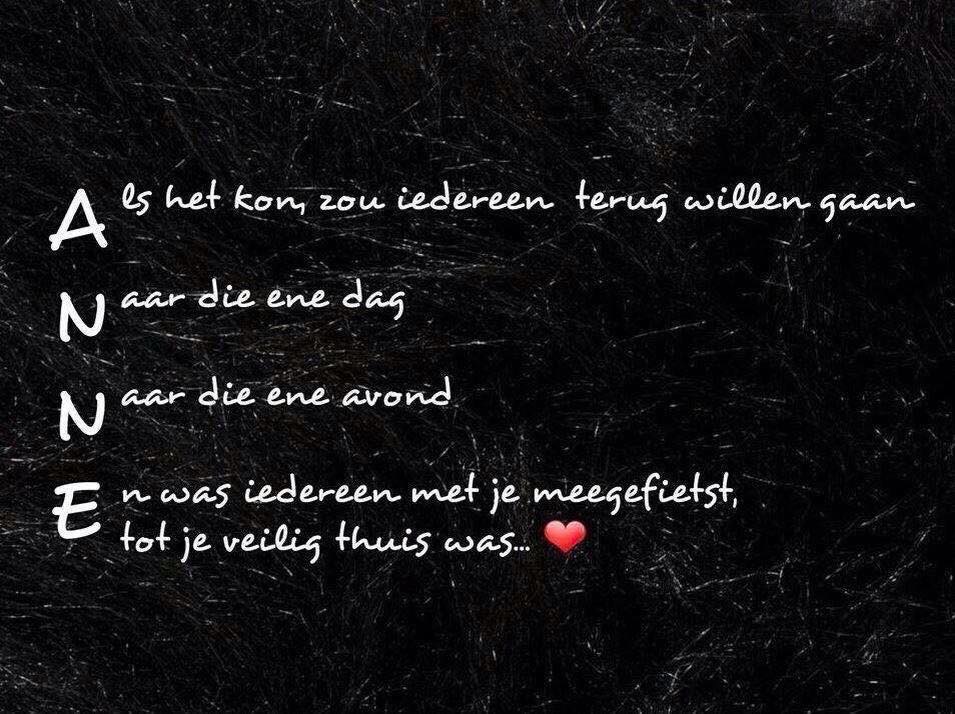 Als het kon, zou iedereen terug willen gaan
Naar die ene dag
Naar die ene avond
En was iedereen met je meegefietst,
tot je veilig thuis was... ❤️